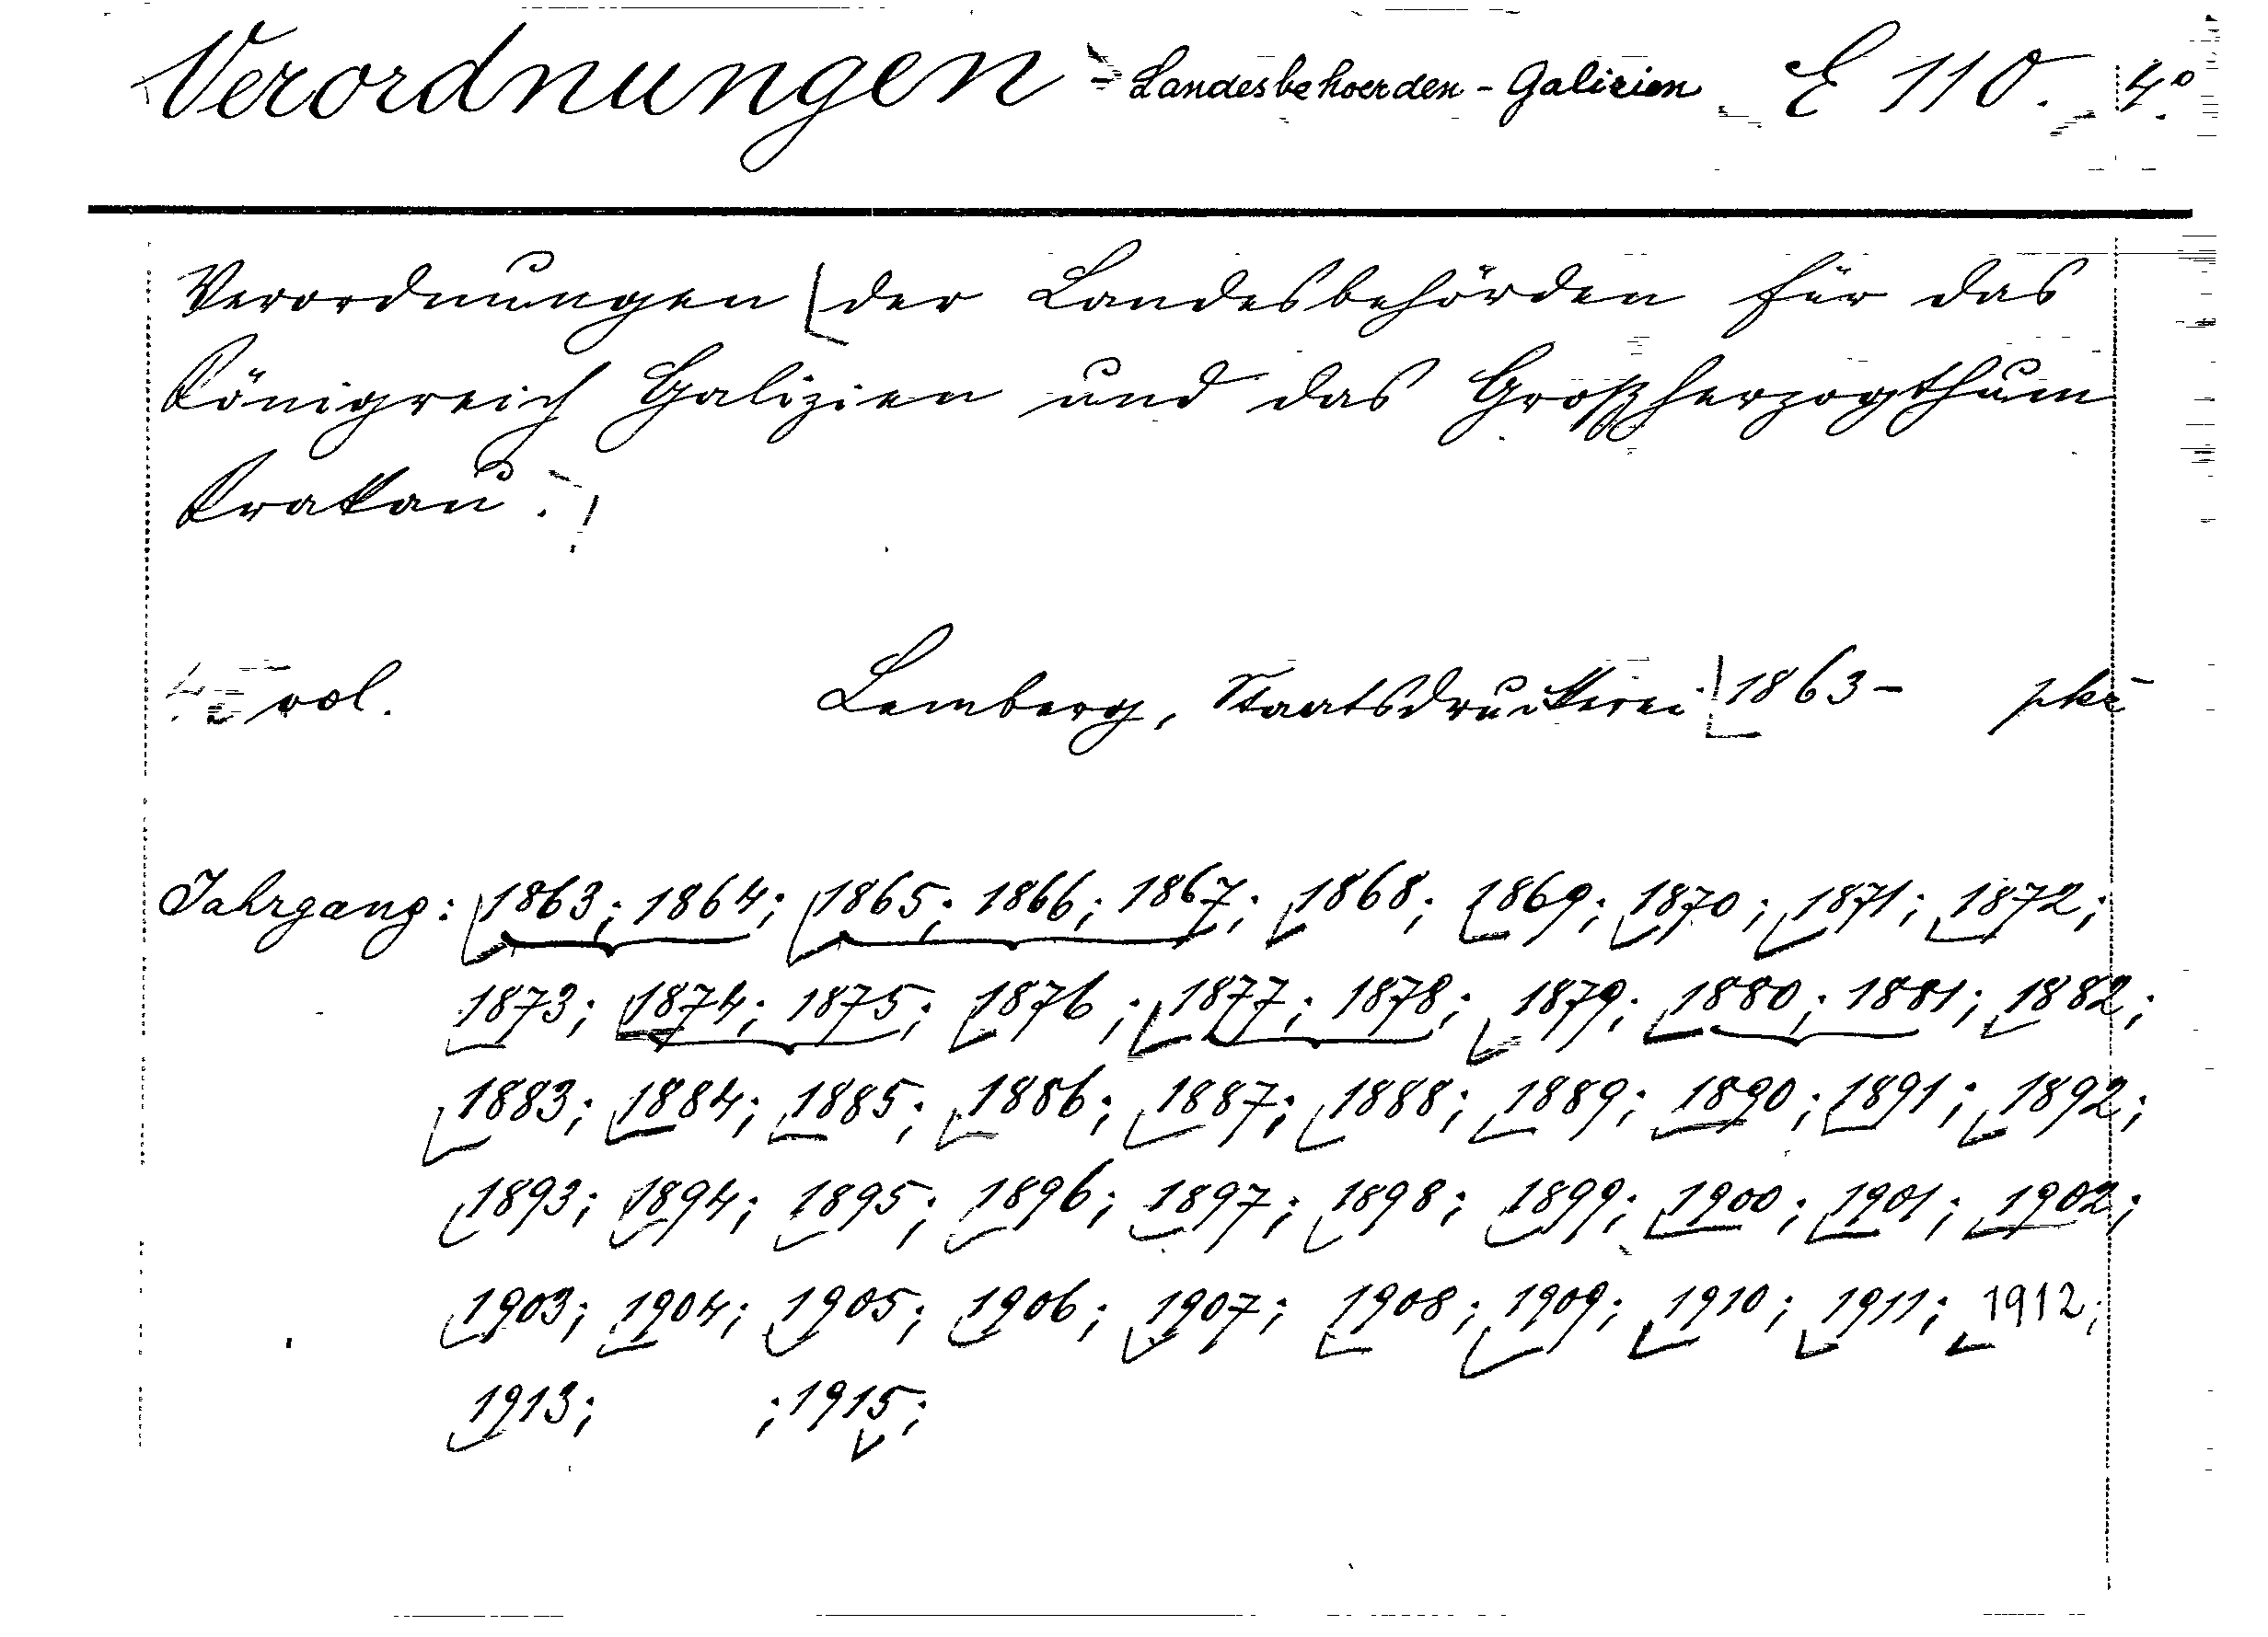 Verordnungen - Landesbehoerden - Galizien E 110. 4º
Verordnungen der Landesbehörden für das
Königreich Galizien und das Großherzogthum
Krakau.
vol. Lemberg, Staatsdruckerei 1863-
Jahrgang: 1863; 1864; 1865; 1866; 1867; 1868; 1869; 1870; 1871; 1872;
1873; 1874; 1875; 1876; 1877; 1878; 1879; 1880; 1881; 1882;
1883; 1884; 1885; 1886; 1887; 1888; 1889; 1890; 1891; 1892;
1893; 1894; 1895; 1896; 1897; 1898; 1899; 1900; 1901; 1902;
1903; 1904; 1905; 1906; 1907; 1908; 1909; 1910; 1911; 1912;
1913; ; 1915;